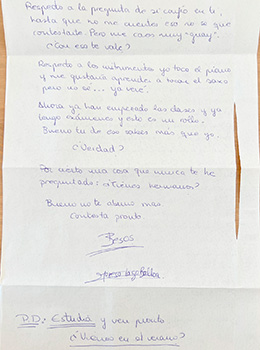 Respecto a la pregunta de si confío en ti,
hasta que no me cuentes eso no se que
contestarte. Pero me caes muy "guay".
¿Con esto vale?
Respecto a los instrumentos yo toco el piano
y me gustaría aprender a tocar el saxo
pero no sé... ya veré.
Ahora ya han empezado las clases y ya
tengo exámenes y esto es un rollo.
Bueno tu de eso sabes más que yo.
¿Verdad?
Por cierto una cosa que nunca te he
preguntado: ¿Tienes hermanos?
Bueno no te aburro más
contesta pronto
Besos
P.D.: Estudia y ven pronto
¿Vienes en el verano?